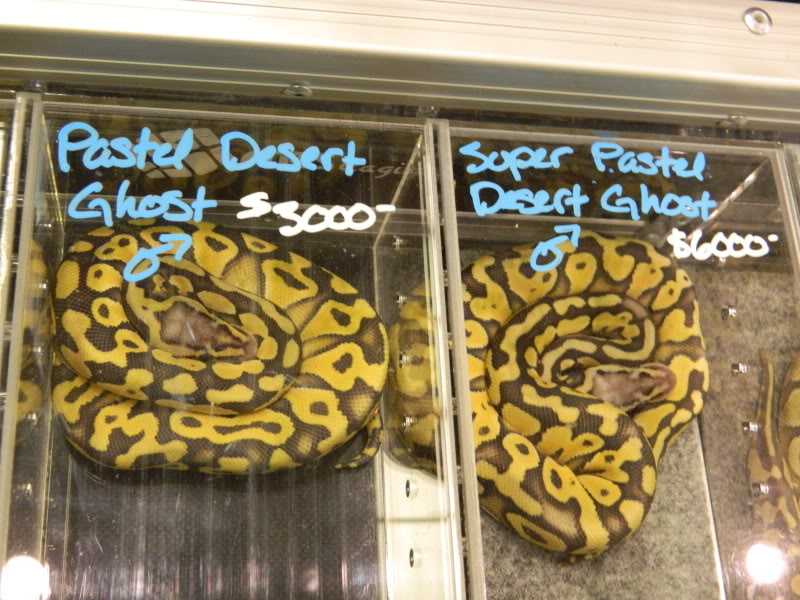 Pastel Desert
Ghost $3000-
♂
Super Pastel
Desert Ghost
♂ $6000-